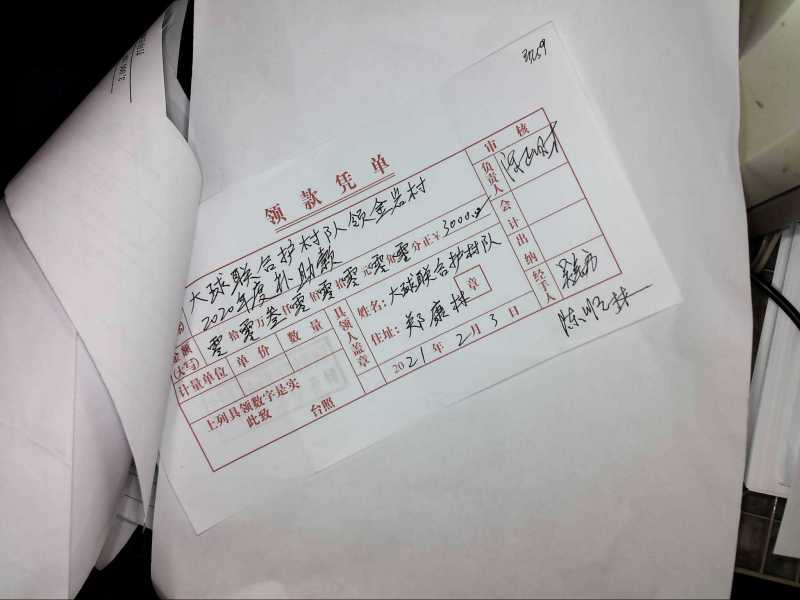 领款凭单
大球联合护村队领金岩村
2020年度补助款
金额(大写) 零拾零万叁仟零佰零拾零元零角零分正¥3000.00
计量单位 单价 数量
上列具领数字是实
此致 台照
具领人盖章
姓名:大球联合护村队
住址:郑康林
章
2021年2月3日
审核
负责人
会计
出纳
经手人